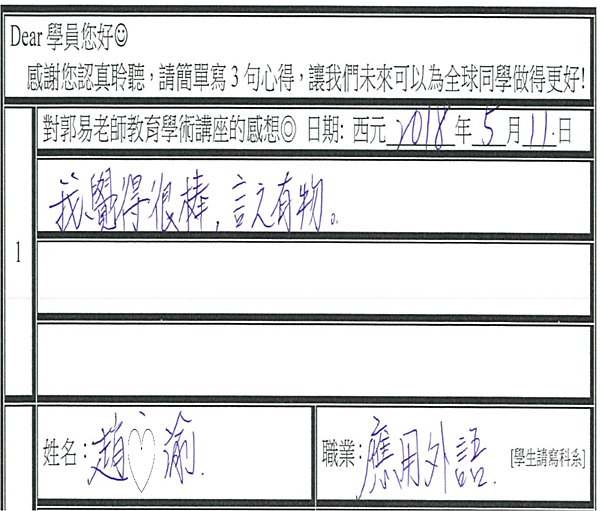 Dear 學員您好☺
感謝您認真聆聽，請簡單寫 3 句心得，讓我們未來可以為全球同學做得更好!
對郭易老師教育學術講座的感想◎ 日期: 西元 2018 年 5 月 11 日
我覺得很棒，言之有物。
1
姓名：趙♡渝.
職業：應用外語. [學生請寫科系]